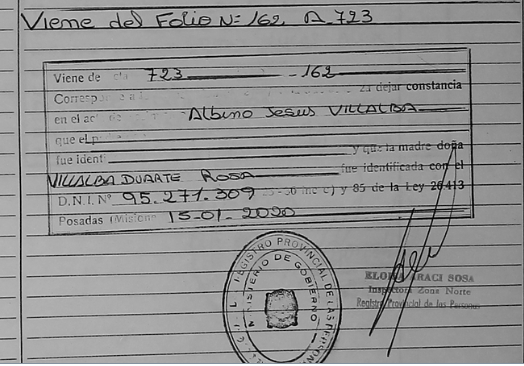 Viene del Folio Nº 162 A 723
Viene de 723 - 162
Corresp dejar constancia
en el ac Albino Jesus VILLALBA
que el
fue identi y que la madre doña
VILLALBA DUARTE ROSA fue identificada con el
D.N.I. Nº 95.271.309 y 85 de la Ley 26.413
Posadas (Misiones 15-01-2020
REGISTRO PROVINCIAL DE LAS PERSONAS
MINISTERIO DE GOBIERNO
ARACI SOSA
Inspectora Zona Norte
Registro Provincial de las Personas